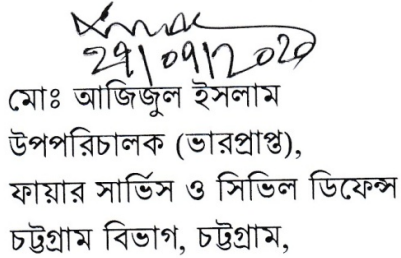 29/09/2020
মোঃ আজিজুল ইসলাম
উপপরিচালক (ভারপ্রাপ্ত),
ফায়ার সার্ভিস ও সিভিল ডিফেন্স
চট্টগ্রাম বিভাগ, চট্টগ্রাম,